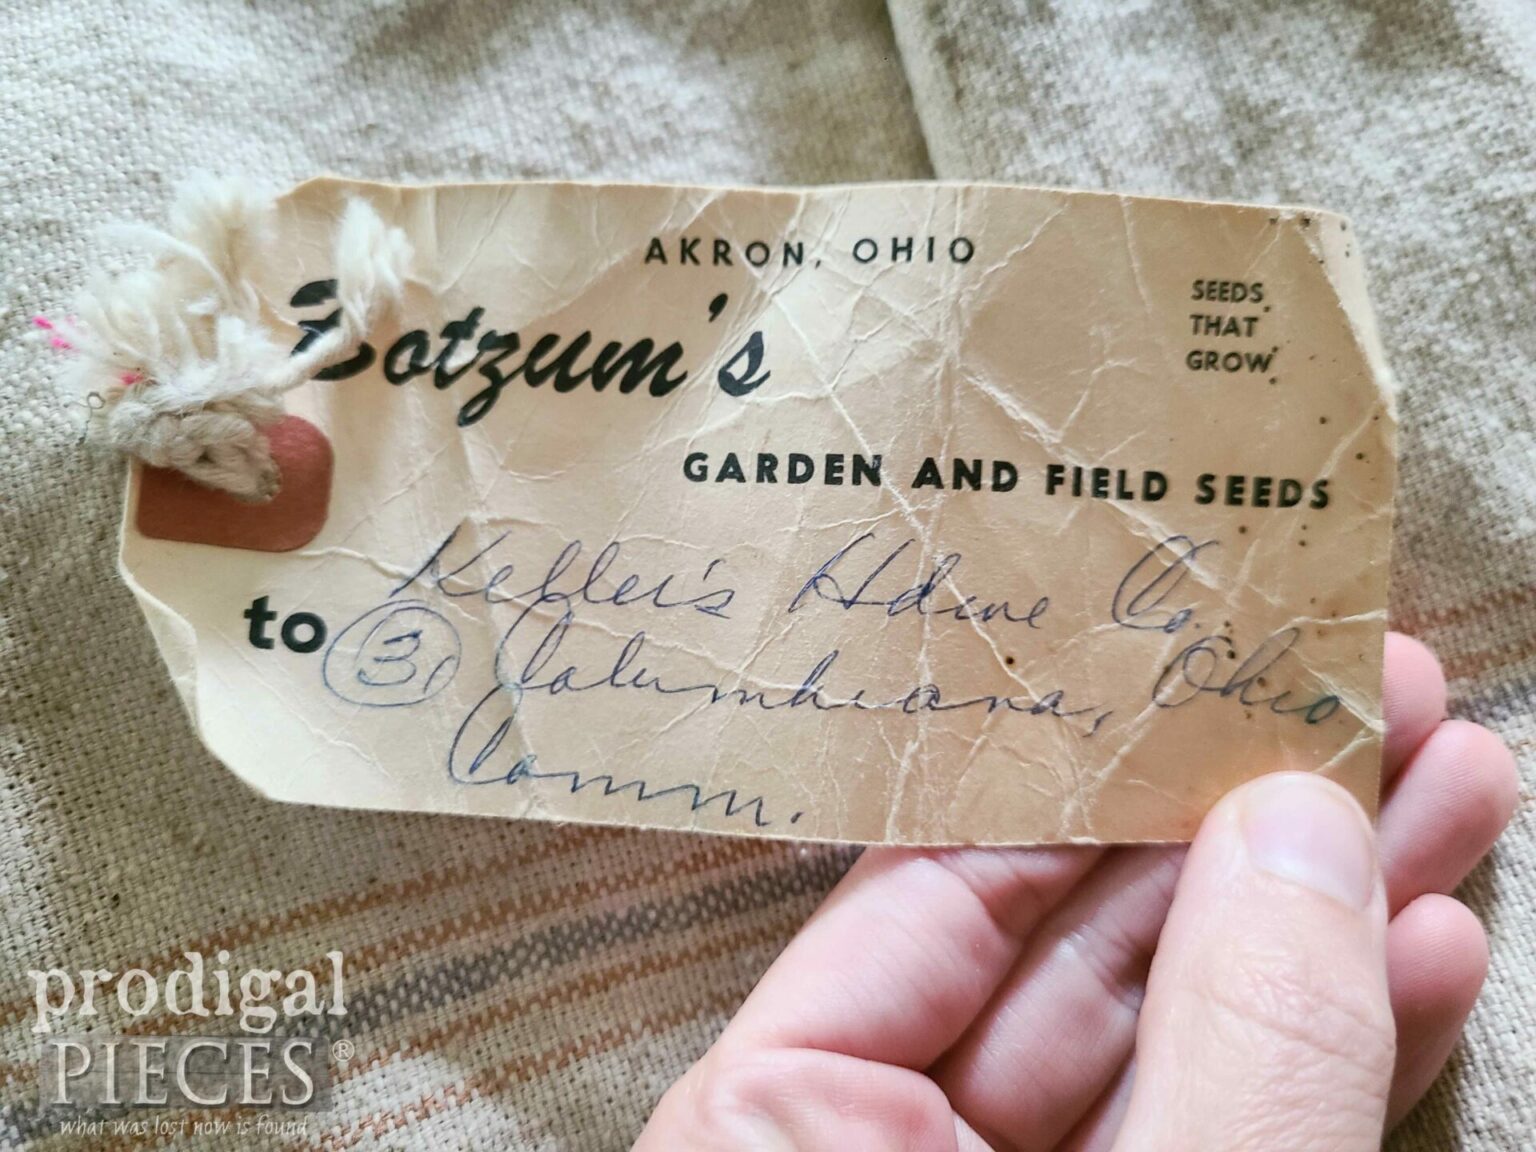 AKRON, OHIO
Botzum's
SEEDS
THAT
GROW
GARDEN AND FIELD SEEDS
to Keller's Hdwe Co.
3 Columbiana, Ohio
Comm.
prodigal
PIECES®
what was lost now is found